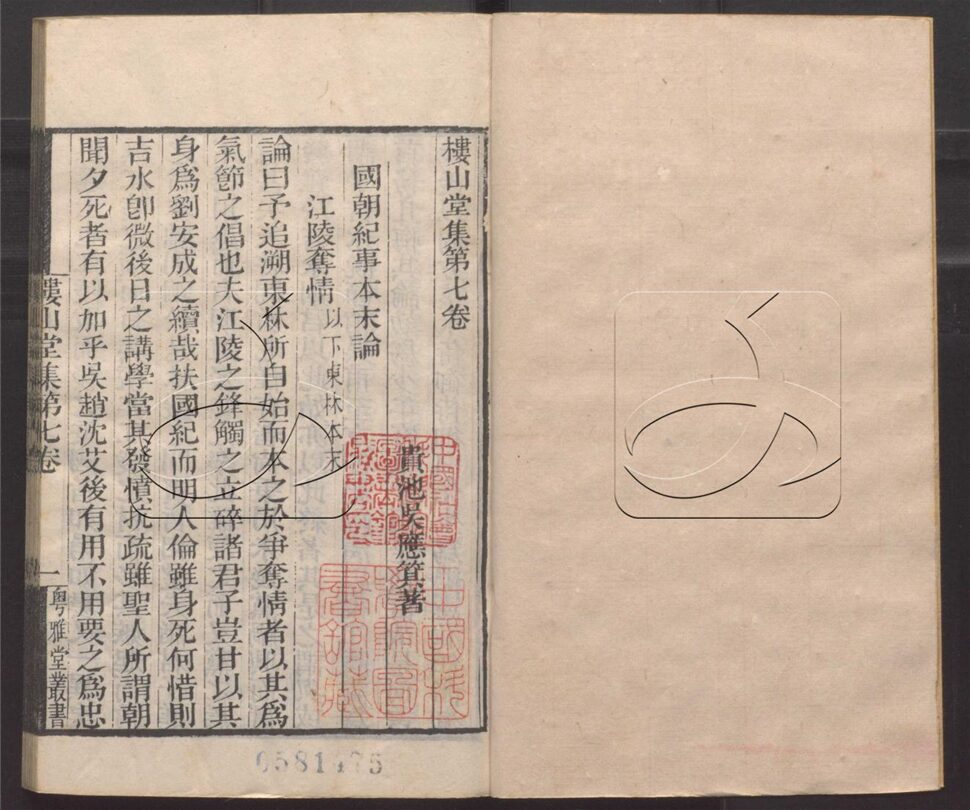 樓山堂集第七卷
貴池吳應箕著
國朝紀事本末論
江陵奪情以下東林本末
論曰予追溯東林所自始而本之於爭奪情者以其爲
氣節之倡也夫江陵之鋒觸之立碎諸君子豈甘以其
身爲劉安成之續哉扶國紀而明人倫雖身死何惜則
吉水卽微後日之講學當其發憤抗疏雖聖人所謂朝
聞夕死者有以加乎吳趙沈艾後有用不用要之爲忠
樓山堂集第七卷
一
粵雅堂叢書
0581475